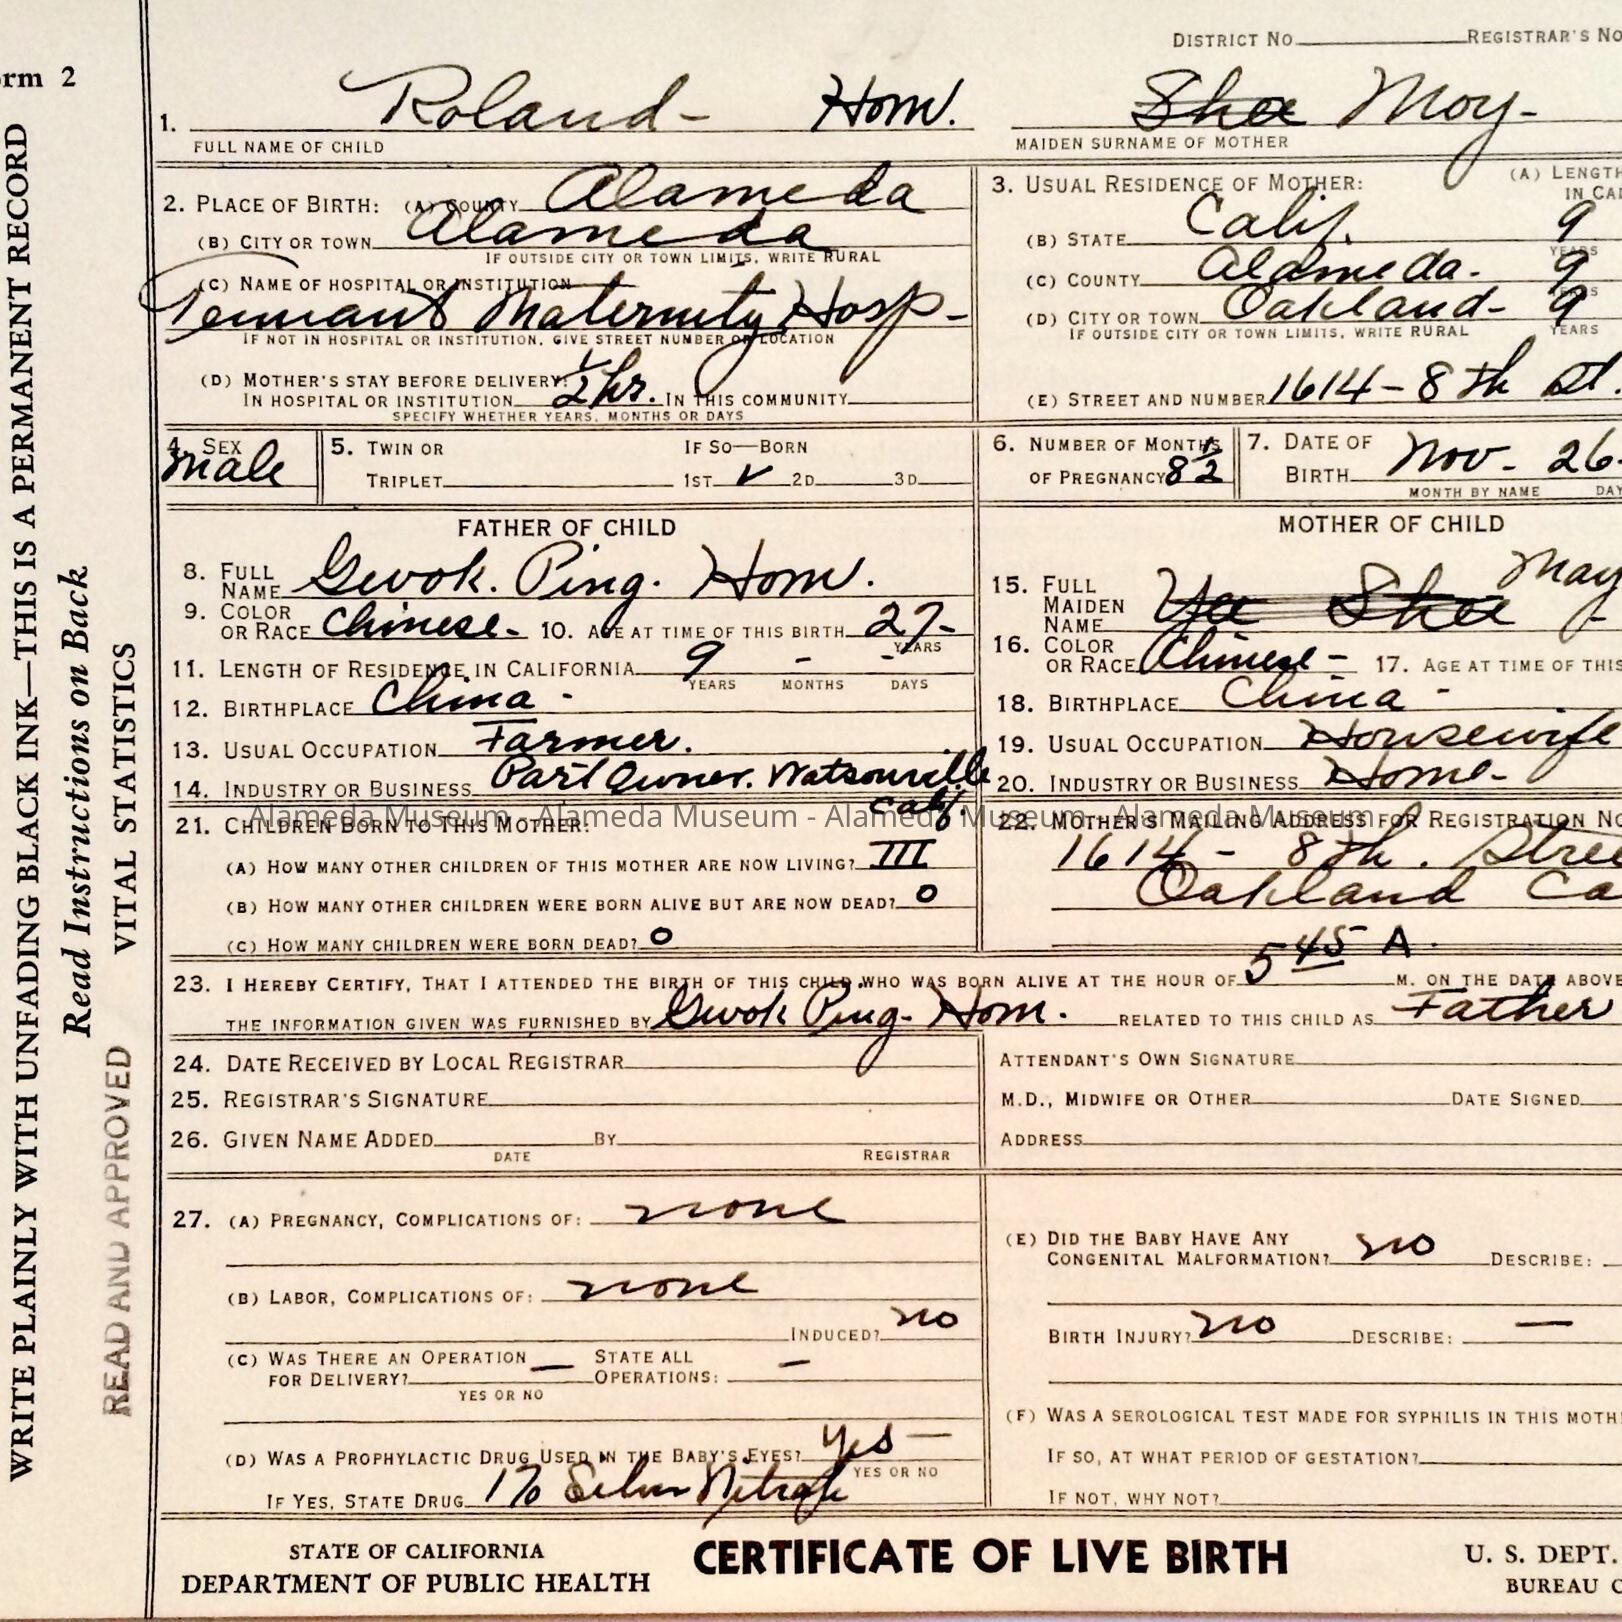 DISTRICT NO. REGISTRAR'S NO
rm 2
1. Roland - Hom. Shee Moy -
FULL NAME OF CHILD MAIDEN SURNAME OF MOTHER
2. PLACE OF BIRTH: (A) COUNTY Alameda
(B) CITY OR TOWN Alameda
IF OUTSIDE CITY OR TOWN LIMITS, WRITE RURAL
(C) NAME OF HOSPITAL OR INSTITUTION
Tennant Maternity Hosp -
IF NOT IN HOSPITAL OR INSTITUTION, GIVE STREET NUMBER OR LOCATION
(D) MOTHER'S STAY BEFORE DELIVERY:
IN HOSPITAL OR INSTITUTION 1/2 hr. IN THIS COMMUNITY
SPECIFY WHETHER YEARS, MONTHS OR DAYS
3. USUAL RESIDENCE OF MOTHER: (A) LENGTH
IN CA
(B) STATE Calif. 9
YEARS
(C) COUNTY Alameda. 9
YEARS
(D) CITY OR TOWN Oakland - 9
IF OUTSIDE CITY OR TOWN LIMITS, WRITE RURAL YEARS
(E) STREET AND NUMBER 1614 - 8th St.
4. SEX
Male
5. TWIN OR IF SO—BORN
TRIPLET 1ST ✓ 2D 3D
6. NUMBER OF MONTHS
OF PREGNANCY 8 1/2
7. DATE OF
BIRTH Nov - 26
MONTH BY NAME DAY
FATHER OF CHILD
8. FULL
NAME Gwok. Ping. Hom.
9. COLOR
OR RACE Chinese - 10. AGE AT TIME OF THIS BIRTH 27 -
YEARS
11. LENGTH OF RESIDENCE IN CALIFORNIA 9 - -
YEARS MONTHS DAYS
12. BIRTHPLACE China -
13. USUAL OCCUPATION Farmer.
14. INDUSTRY OR BUSINESS Part Owner. Watsonville
Calif.
MOTHER OF CHILD
15. FULL May
MAIDEN Yee Shee
NAME
16. COLOR
OR RACE Chinese - 17. AGE AT TIME OF THIS
18. BIRTHPLACE China -
19. USUAL OCCUPATION Housewife
20. INDUSTRY OR BUSINESS Home -
Alameda Museum - Alameda Museum - Alameda Museum - Alameda Museum
21. CHILDREN BORN TO THIS MOTHER:
(A) HOW MANY OTHER CHILDREN OF THIS MOTHER ARE NOW LIVING? III
(B) HOW MANY OTHER CHILDREN WERE BORN ALIVE BUT ARE NOW DEAD? 0
(C) HOW MANY CHILDREN WERE BORN DEAD? 0
22. MOTHER'S MAILING ADDRESS FOR REGISTRATION NO
1614 - 8th. Stree
Oakland Ca
23. I HEREBY CERTIFY, THAT I ATTENDED THE BIRTH OF THIS CHILD WHO WAS BORN ALIVE AT THE HOUR OF 5 45 A. M. ON THE DATE ABOVE
THE INFORMATION GIVEN WAS FURNISHED BY Gwok Ping. Hom. RELATED TO THIS CHILD AS Father
24. DATE RECEIVED BY LOCAL REGISTRAR ATTENDANT'S OWN SIGNATURE
25. REGISTRAR'S SIGNATURE M.D., MIDWIFE OR OTHER DATE SIGNED
26. GIVEN NAME ADDED BY ADDRESS
DATE REGISTRAR
27. (A) PREGNANCY, COMPLICATIONS OF: none
(B) LABOR, COMPLICATIONS OF: none
INDUCED? no
(C) WAS THERE AN OPERATION — STATE ALL —
FOR DELIVERY? OPERATIONS:
YES OR NO
(D) WAS A PROPHYLACTIC DRUG USED IN THE BABY'S EYES? yes —
YES OR NO
IF YES, STATE DRUG 1% Silver Nitrate
(E) DID THE BABY HAVE ANY
CONGENITAL MALFORMATION? no DESCRIBE:
BIRTH INJURY? no DESCRIBE: —
(F) WAS A SEROLOGICAL TEST MADE FOR SYPHILIS IN THIS MOTH
IF SO, AT WHAT PERIOD OF GESTATION?
IF NOT, WHY NOT?
STATE OF CALIFORNIA
DEPARTMENT OF PUBLIC HEALTH
CERTIFICATE OF LIVE BIRTH
U. S. DEPT.
BUREAU O
WRITE PLAINLY WITH UNFADING BLACK INK—THIS IS A PERMANENT RECORD
Read Instructions on Back
VITAL STATISTICS
READ AND APPROVED